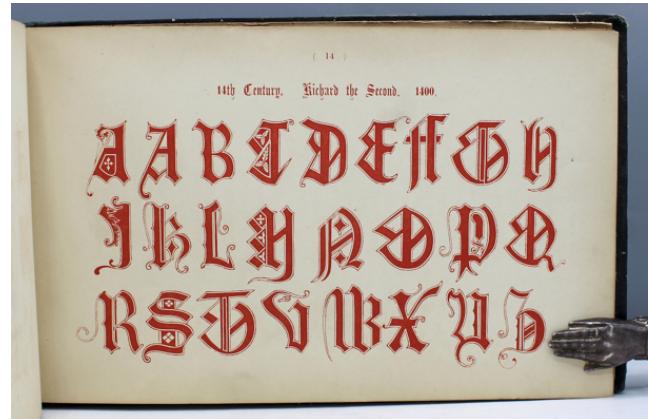 ( 14 )
14th Century. Richard the Second. 1400.
A A B C D E F G H
I K L M N O P Q
R S T V W X Y Z